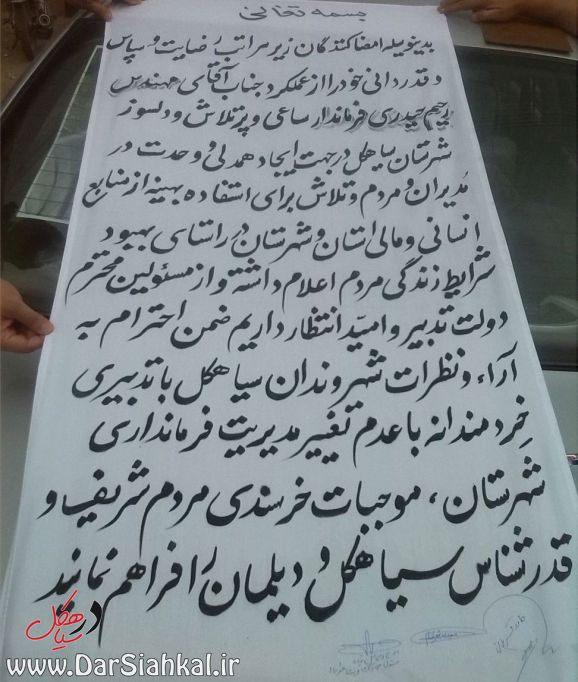 بسمه تعالی
بدینوسیله امضاکنندگان زیر مراتب رضایت و سپاس
و قدردانی خود را از عملکرد جناب آقای مهندس
رحیم حیدری فرماندار ساعی و پرتلاش و دلسوز
شهرستان سیاهکل در جهت ایجاد همدلی و وحدت در
مُدیران و مردم و تلاش برای استفاده بهینه از منابع
انسانی و مالی استان و شهرستان در راستای بهبود
شرایط زندگی مردم اعلام داشته و از مسئولین محترم
دولت تدبیر و امیّد انتظار داریم ضمن احترام به
آراء و نظرات شهروندان سیاهکل با تدبیری
خِردمندانه با عدم تغییر مدیریت فرمانداری
شهرستان، موجبات خرسندی مردم شریف و
قدرشناس سیاهکل و دیلمان را فراهم نمایند
در سیاهکل
www.DarSiahkal.ir